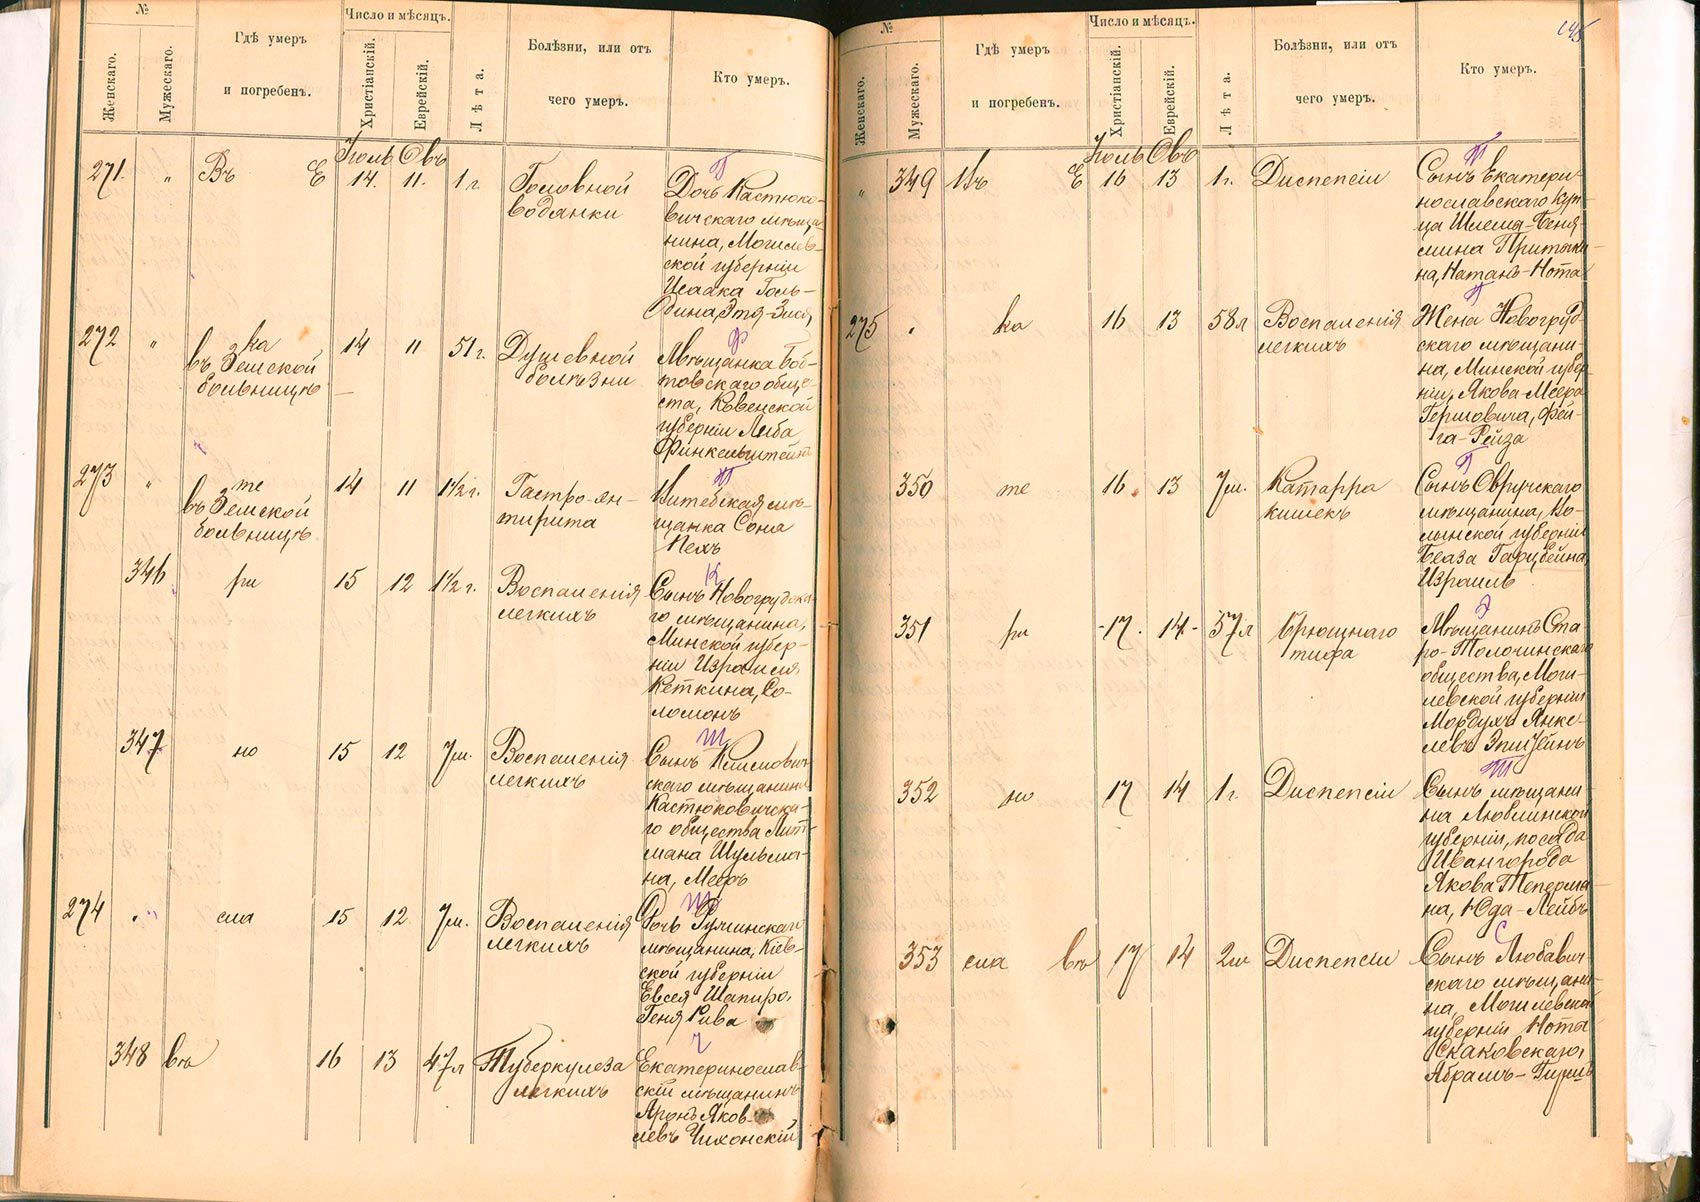 №
Женскаго.
Мужескаго.
Гдѣ умеръ
и погребенъ.
Число и мѣсяцъ.
Христіанскій.
Еврейскій.
Лѣта.
Болѣзни, или отъ
чего умеръ.
Кто умеръ.
Іюль Овъ
271. " Въ Е 14. 11. 1 г.
Головной
водянки
П
Дочь Кастюко-
вичскаго мѣща
нина, Могилев-
ской губерніи
Исаака Голь-
дина, Этя-Зися,
272 " ка
въ Земской
больницѣ
14 11 51 г.
Душевной
болѣзни
Ф
Мѣщанка
товскаго обще-
ста, Ковенской
губерніи Либа
Финкельштейнъ
273 " те
въ Земской
больницѣ
14 11 1½ г.
Гастро-ян-
тирита
П
Витебская мѣ-
щанка Соня
Пехъ
346 ри 15 12 1½ г.
Воспаленія
легкихъ
К
Сынъ Новогрудска
го мѣщанина,
Минской губер-
ніи Израиля
Кеткина, Со-
ломонъ
347 но 15 12 7 м.
Воспаленія
легкихъ
Ш
Сынъ Климович
скаго мѣщанина
Кастюковичска-
го общества Лит-
мана Шульма-
на, Мееръ
274 " сла 15 12 7 м.
Воспаленія
легкихъ
Ш
Дочь
мѣщанина, Кіев-
ской губерніи
Евсея Шапиро,
Геня Рива
348 въ 16 13 47 л
Туберкулеза
легкихъ
Ч
Екатеринослав-
скій мѣщанинъ
Аронъ Яков-
левъ Чихонскій
№
Женскаго.
Мужескаго.
Гдѣ умеръ
и погребенъ.
Число и мѣсяцъ.
Христіанскій.
Еврейскій.
Лѣта.
Болѣзни, или отъ
чего умеръ.
Кто умеръ.
Іюль Овъ
" 349 Въ Е 16 13 1 г.
Диспепсіи
П
Сынъ Екатери-
нославскаго куп-
ца Шлема-Беня-
мина Притыки-
на, Натанъ-Нота
275 " ка 16 13 58 л
Воспаленія
легкихъ
Г
Жена Новогруд-
скаго мѣщани-
на, Минской губер
ніи, Якова-Меера
Гершовича, Фей-
га-Рейза
350 те 16 13 7 м.
Катарра
кишекъ
Г
Сынъ Овручскаго
мѣщанина, Во-
лынской губерніи
Израиль
351 ри 17. 14 57 л
Брюшнаго
тифа
Э
Мѣщанинъ Ста-
ро-Толочинскаго
общества, Моги-
левской губерніи
Мордухъ Янке-
левъ Эпштейнъ
352 но 17 14 1 г.
Диспепсіи
Т
Сынъ мѣщани-
на Люблинской
губерніи, посада
Ивангорода
Якова Теперма-
на, Юда-Лейбъ
353 сла въ 17 14 2 м
Диспепсіи
С
Сынъ Любавич-
скаго мѣщани-
на, Могилевской
губерніи Нота
Скаковскаго,
Абрамъ-Гиршъ